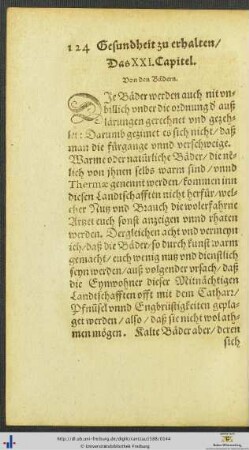 124 Gesundheit zu erhalten/
Das XXI. Capitel.
Von den Bädern.
DJe Bäder werden auch nit vn-
billich vnder die ordnung d auß
lärungen gerechnet vnd gezeh-
let: Darumb gezimet es sich nicht/ daß
man die fürgange vnnd verschweige.
Warme oder natürliche Bäder/ die nē-
lich von jhnen selbs warm sind/ vnnd
Thermæ genennt werden/ kommen inn
diesen Landschafften nicht herfür/ wel-
cher Nutz vnd Brauch die wolerfahrne
Artzet euch sonst anzeigen vnnd rhaten
werden. Dergleichen acht vnd vermeyn
ich/ daß die Bäder/ so durch kunst warm
gemacht/ euch wenig nutz vnd dienstlich
seyn werden/ auß volgender vrsach/ daß
die Eynwohner dieser Mitnächtigen
Landtschafften offt mit dem Cathar:/
Pfnüsel vnnd Engbrüstigkeiten gepla-
get werden/ also/ daß sie nicht wol ath-
men mögen. Kalte Bäder aber/ deren
sich
© Universitätsbibliothek Freiburg